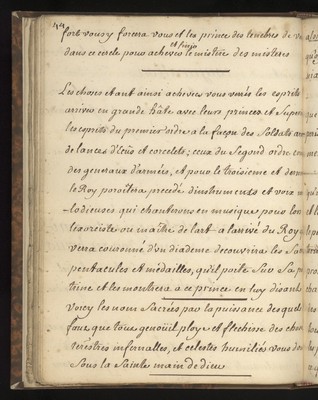 44
fort voucy forcera vous et les prince des tenebres de v
et finir
dans ce cercle pour achever le mistere des misteres
Les choses etant ainsi achevées vous verrés les esprits
arriver en grande hâte avec leurs princes et Super
les esprits du premier ordre a la façon des Soldats ar
de lances d'Ecus et corcelets; ceux du Segond ordre com
des generaux d'armées, et pour le troisieme et dern
le Roy poroitra precedé d'instruments et voix m
-lodieuses qui chanterons en musique pour lors
lexorciste ou maitre de l'art a l'arrivé du Roy q
verra couronné d'un diademe decouvrira les San
pentacules et medailles, qu'il porte Sur Sa p
trine et les montrera a ce prince en luy disant
voicy les nom Sacrés par la puissance desquels
faut que tout genoüil ploye et flechisse des chos
terestres infernalles, et celestes humiliés vous don
Sous la Sainte main de dieu